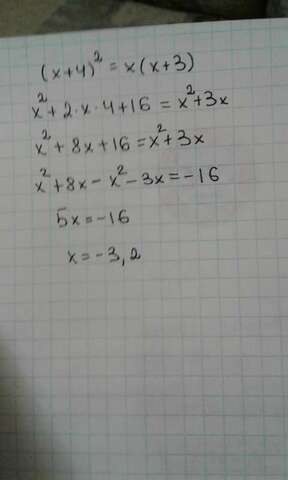 (x+4)² = x(x+3)
x²+2·x·4+16 = x²+3x
x²+8x+16=x²+3x
x²+8x-x²-3x=-16
5x=-16
x=-3,2